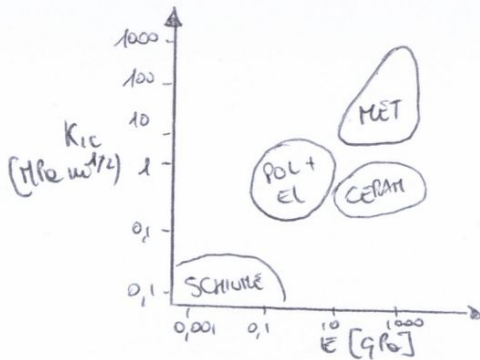 1000
100
10
1
0,1
0,1
K₁c
(MPa m^1/2)
MET
POL +
EL
CERAM
SCHIUME
0,001 0,1 10 1000
E [GPa]